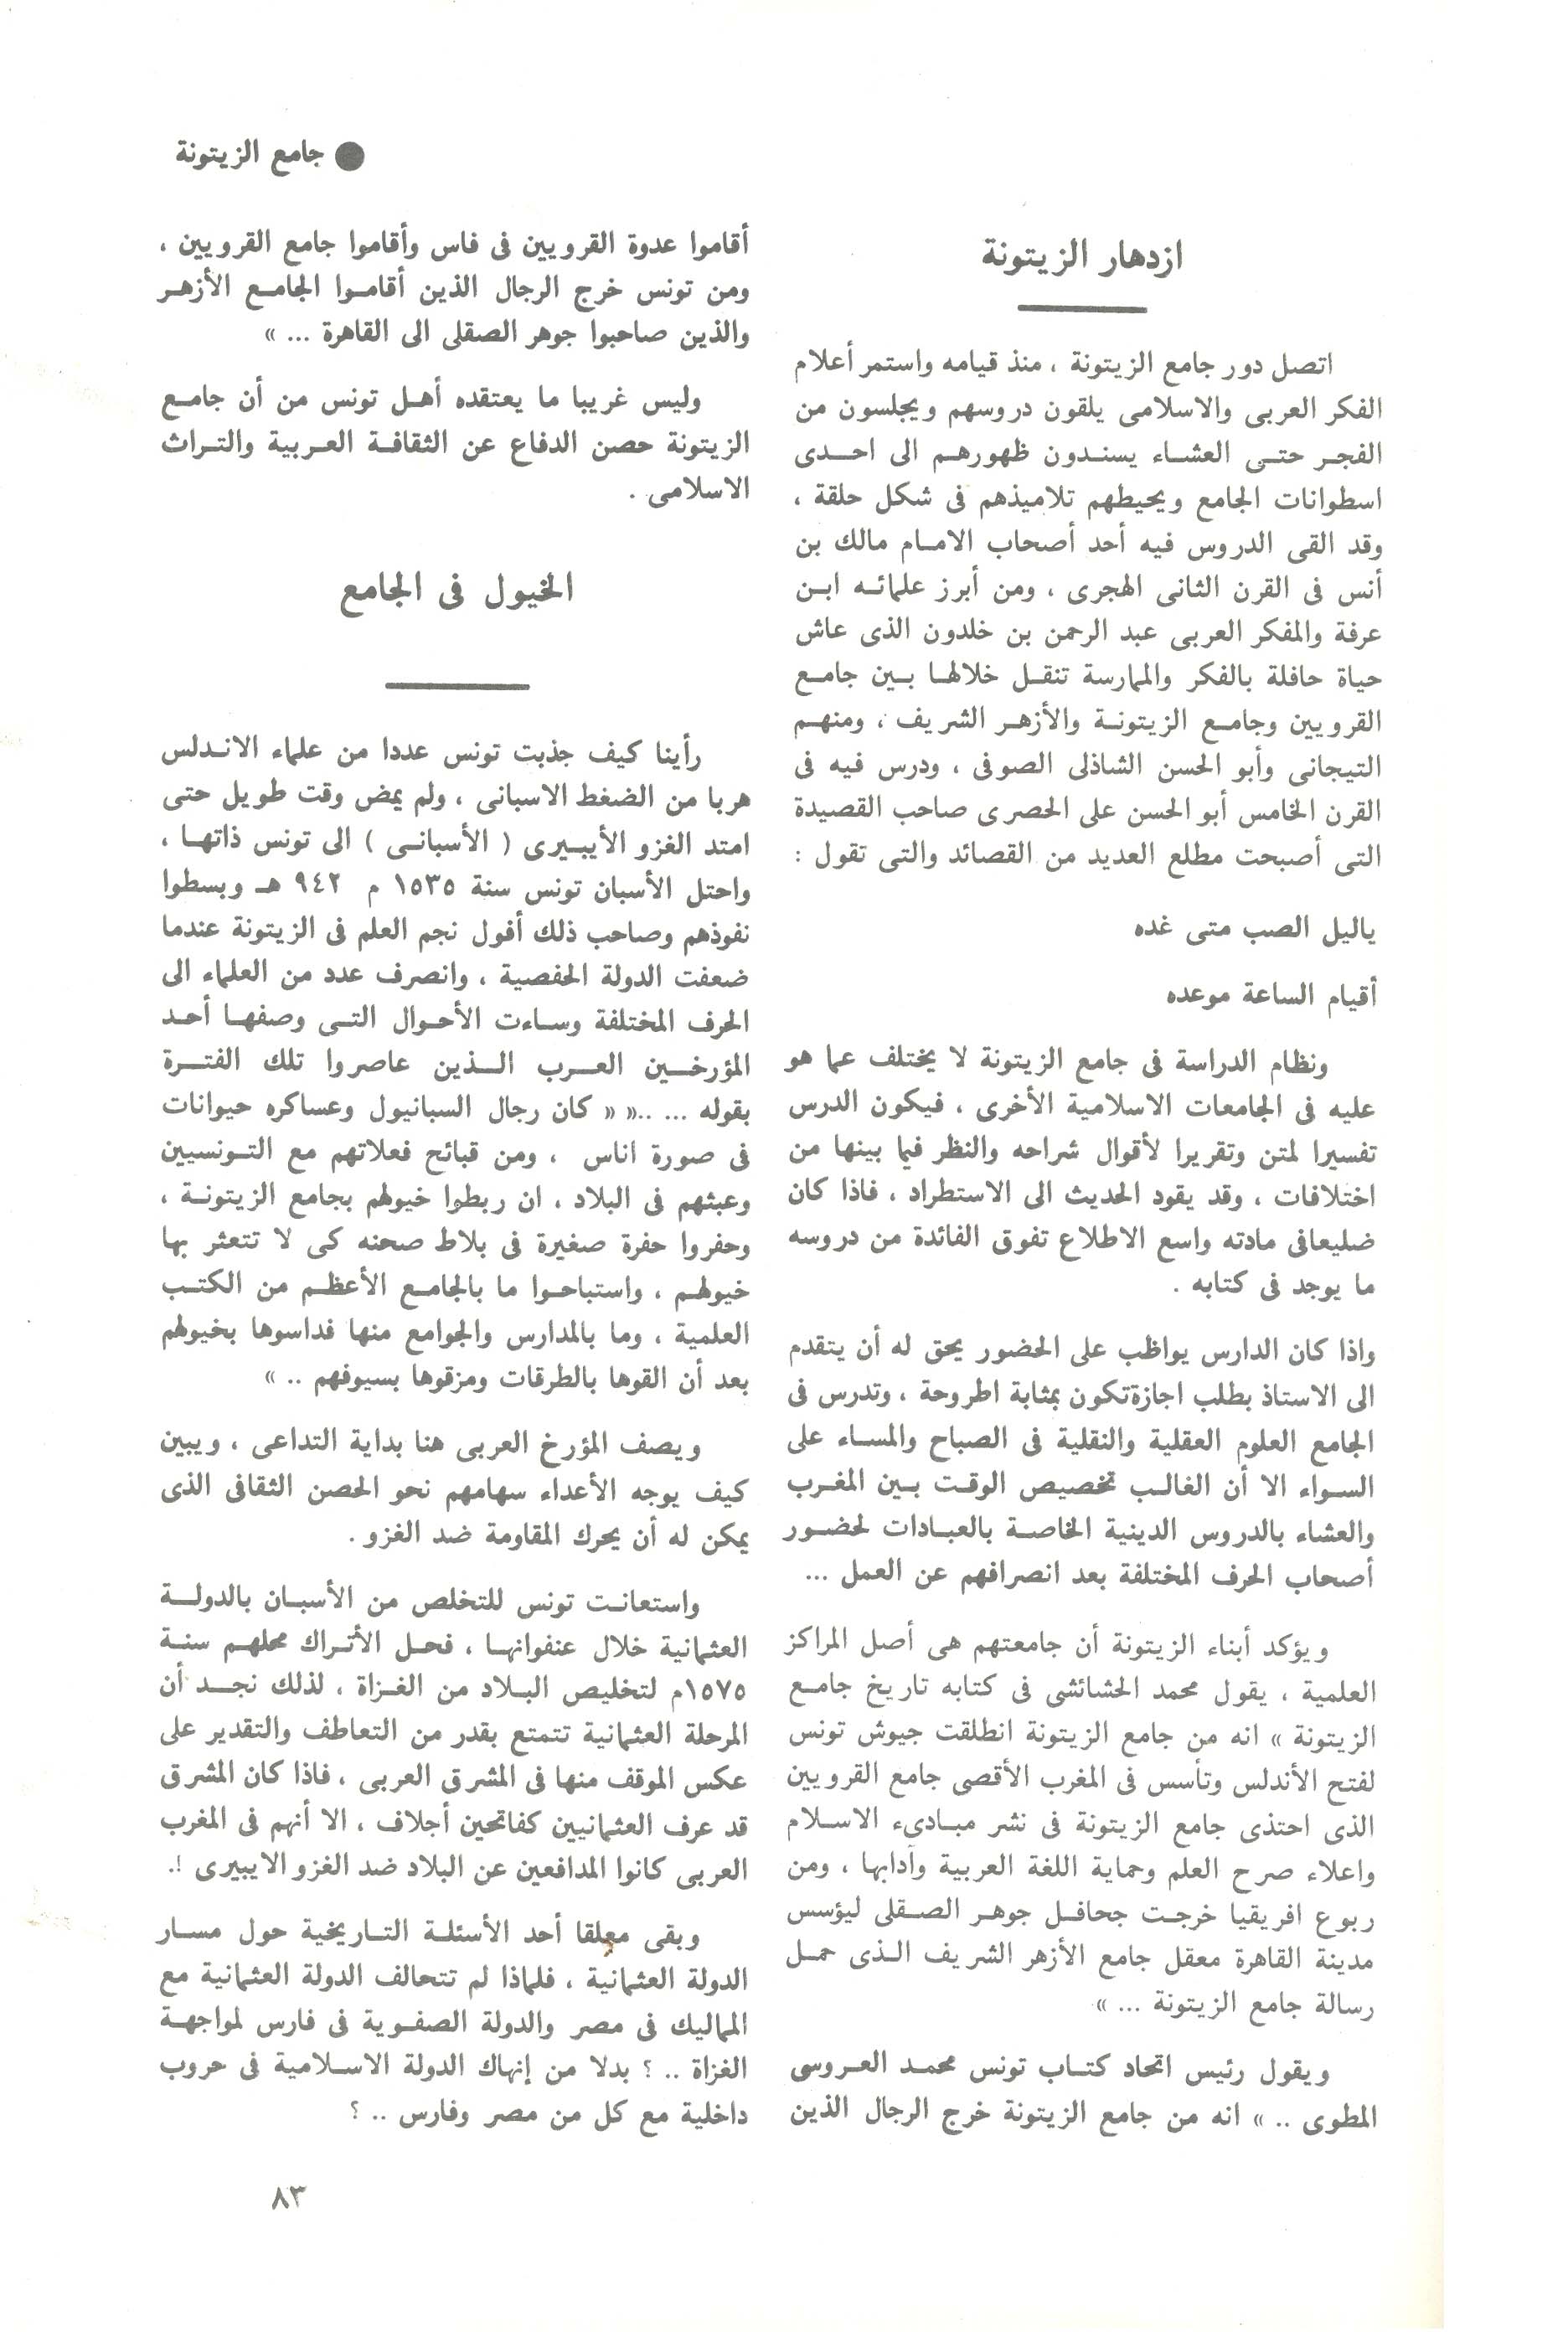 ● جامع الزيتونة
ازدهار الزيتونة
اتصل دور جامع الزيتونة ، منذ قيامه واستمر أعلام
الفكر العربى والاسلامى يلقون دروسهم ويجلسون من
الفجر حتى العشاء يسندون ظهورهم الى احدى
اسطوانات الجامع ويحيطهم تلاميذهم فى شكل حلقة ،
وقد القى الدروس فيه أحد أصحاب الامام مالك بن
أنس فى القرن الثانى الهجرى ، ومن أبرز علمائه ابن
عرفة والمفكر العربى عبد الرحمن بن خلدون الذى عاش
حياة حافلة بالفكر والممارسة تنقل خلالها بين جامع
القرويين وجامع الزيتونة والأزهر الشريف ، ومنهم
التيجانى وأبو الحسن الشاذلى الصوفى ، ودرس فيه فى
القرن الخامس أبو الحسن على الحصرى صاحب القصيدة
التى أصبحت مطلع العديد من القصائد والتى تقول :
ياليل الصب متى غده
أقيام الساعة موعده
ونظام الدراسة فى جامع الزيتونة لا يختلف عما هو
عليه فى الجامعات الاسلامية الأخرى ، فيكون الدرس
تفسيرا لمتن وتقريرا لأقوال شراحه والنظر فيما بينها من
اختلافات ، وقد يقود الحديث الى الاستطراد ، فاذا كان
ضليعافى مادته واسع الاطلاع تفوق الفائدة من دروسه
ما يوجد فى كتابه .
واذا كان الدارس يواظب على الحضور يحق له أن يتقدم
الى الاستاذ بطلب اجازةتكون بمثابة اطروحة ، وتدرس فى
الجامع العلوم العقلية والنقلية فى الصباح والمساء على
السواء الا أن الغالب تخصيص الوقت بين المغرب
والعشاء بالدروس الدينية الخاصة بالعبادات لحضور
أصحاب الحرف المختلفة بعد انصرافهم عن العمل ...
ويؤكد أبناء الزيتونة أن جامعتهم هى أصل المراكز
العلمية ، يقول محمد الحشائشى فى كتابه تاريخ جامع
الزيتونة » انه من جامع الزيتونة انطلقت جيوش تونس
لفتح الأندلس وتأسس فى المغرب الأقصى جامع القرويين
الذى احتذى جامع الزيتونة فى نشر مبادىء الاسلام
واعلاء صرح العلم وحماية اللغة العربية وآدابها ، ومن
ربوع افريقيا خرجت جحافل جوهر الصقلى ليؤسس
مدينة القاهرة معقل جامع الأزهر الشريف الذى حمل
رسالة جامع الزيتونة ... »
ويقول رئيس اتحاد كتاب تونس محمد العروسى
المطوى .. » انه من جامع الزيتونة خرج الرجال الذين
أقاموا عدوة القرويين فى فاس وأقاموا جامع القرويين ،
ومن تونس خرج الرجال الذين أقاموا الجامع الأزهر
والذين صاحبوا جوهر الصقلى الى القاهرة ... »
وليس غريبا ما يعتقده أهل تونس من أن جامع
الزيتونة حصن الدفاع عن الثقافة العربية والتراث
الاسلامى .
الخيول فى الجامع
رأينا كيف جذبت تونس عددا من علماء الاندلس
هربا من الضغط الاسبانى ، ولم يمض وقت طويل حتى
امتد الغزو الأيبيرى ( الأسبانى ) الى تونس ذاتها ،
واحتل الأسبان تونس سنة ١٥٣٥ م ٩٤٢ هـ وبسطوا
نفوذهم وصاحب ذلك أفول نجم العلم فى الزيتونة عندما
ضعفت الدولة الحفصية ، وانصرف عدد من العلماء الى
الحرف المختلفة وساءت الأحوال التى وصفها أحد
المؤرخين العرب الذين عاصروا تلك الفترة
بقوله ... ..« « كان رجال السبانيول وعساكره حيوانات
فى صورة اناس ، ومن قبائح فعلاتهم مع التونسيين
وعبثهم فى البلاد ، ان ربطوا خيولهم بجامع الزيتونة ،
وحفروا حفرة صغيرة فى بلاط صحنه كى لا تتعثر بها
خيولهم ، واستباحوا ما بالجامع الأعظم من الكتب
العلمية ، وما بالمدارس والجوامع منها فداسوها بخيولهم
بعد أن القوها بالطرقات ومزقوها بسيوفهم .. »
ويصف المؤرخ العربى هنا بداية التداعى ، ويبين
كيف يوجه الأعداء سهامهم نحو الحصن الثقافى الذى
يمكن له أن يحرك المقاومة ضد الغزو .
واستعانت تونس للتخلص من الأسبان بالدولة
العثمانية خلال عنفوانها ، فحل الأتراك محلهم سنة
١٥٧٥م لتخليص البلاد من الغزاة ، لذلك نجد أن
المرحلة العثمانية تتمتع بقدر من التعاطف والتقدير على
عكس الموقف منها فى المشرق العربى ، فاذا كان المشرق
قد عرف العثمانيين كفاتحين أجلاف ، الا أنهم فى المغرب
العربى كانوا المدافعين عن البلاد ضد الغزو الايبيرى !.
وبقى معلقا أحد الأسئلة التاريخية حول مسار
الدولة العثمانية ، فلماذا لم تتحالف الدولة العثمانية مع
المماليك فى مصر والدولة الصفوية فى فارس لمواجهة
الغزاة .. ؟ بدلا من إنهاك الدولة الاسلامية فى حروب
داخلية مع كل من مصر وفارس .. ؟
٨٣